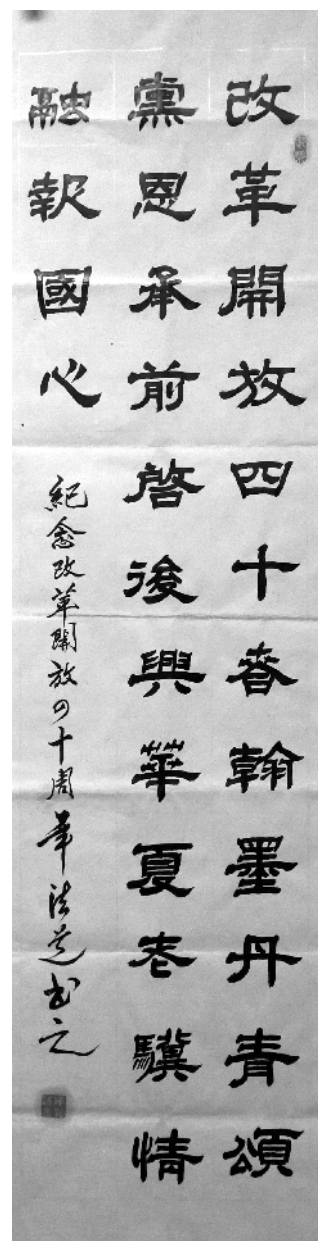 改革開放四十春翰墨丹青頌
黨恩承前啓後興華夏老驥情
融報國心
紀念改革開放四十周年法芝书之